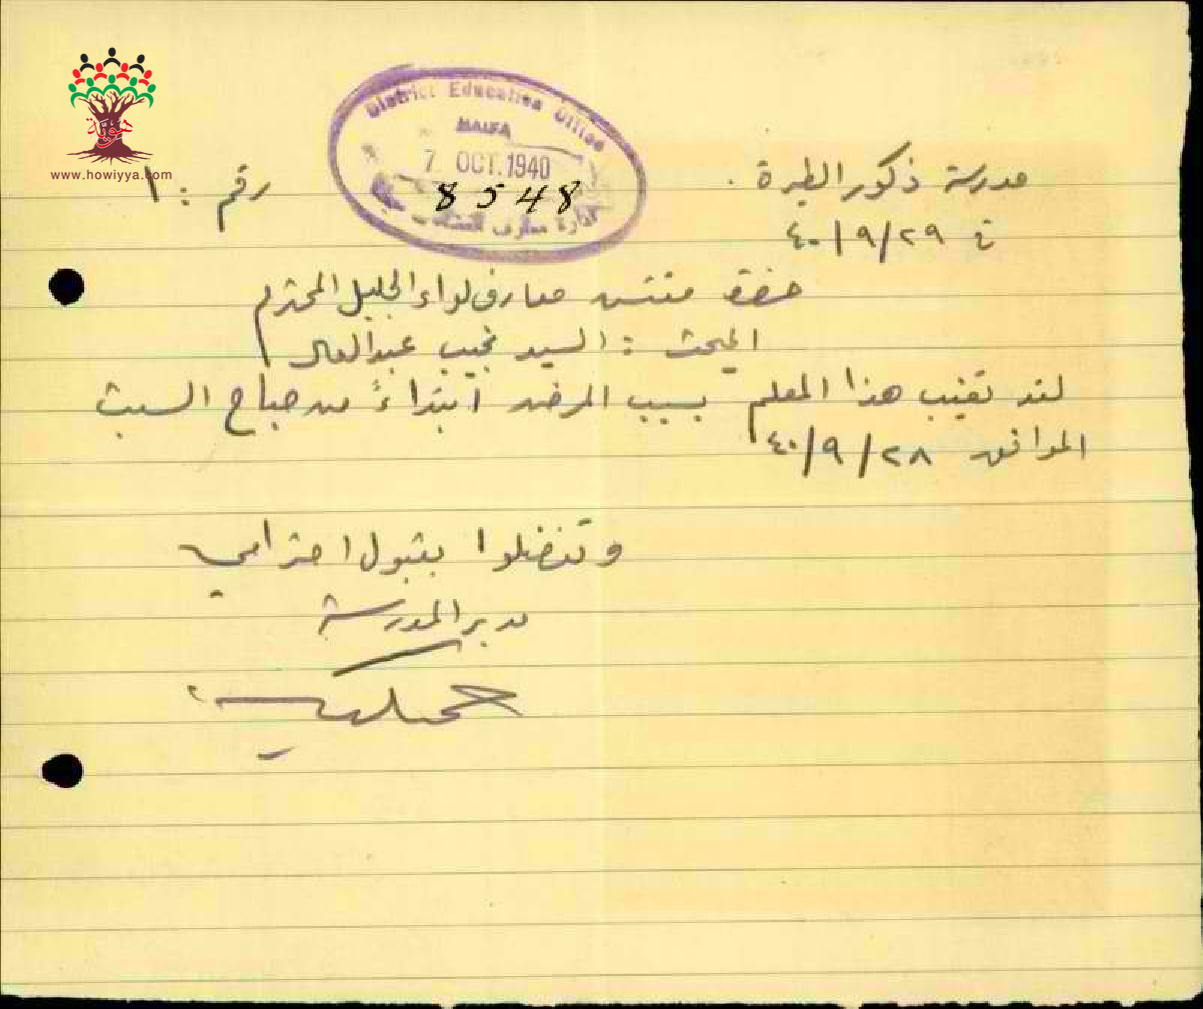 هوية
www.howiyya.com
District Education Office
HAIFA
7 OCT. 1940
8548
ادارة معارف
مدرسة ذكور الطيرة . رقم : ١
في ٢٩/٩/٤٠
حضرة مفتش معارف لواء الجليل المحترم
المبحث : السيد نجيب عبدالعال
لقد تغيب هذا المعلم بسبب المرض ابتداءً من صباح السبت
الموافق ٢٨/٩/٤٠
وتفضلوا بقبول احترامي
مدير المدرسة